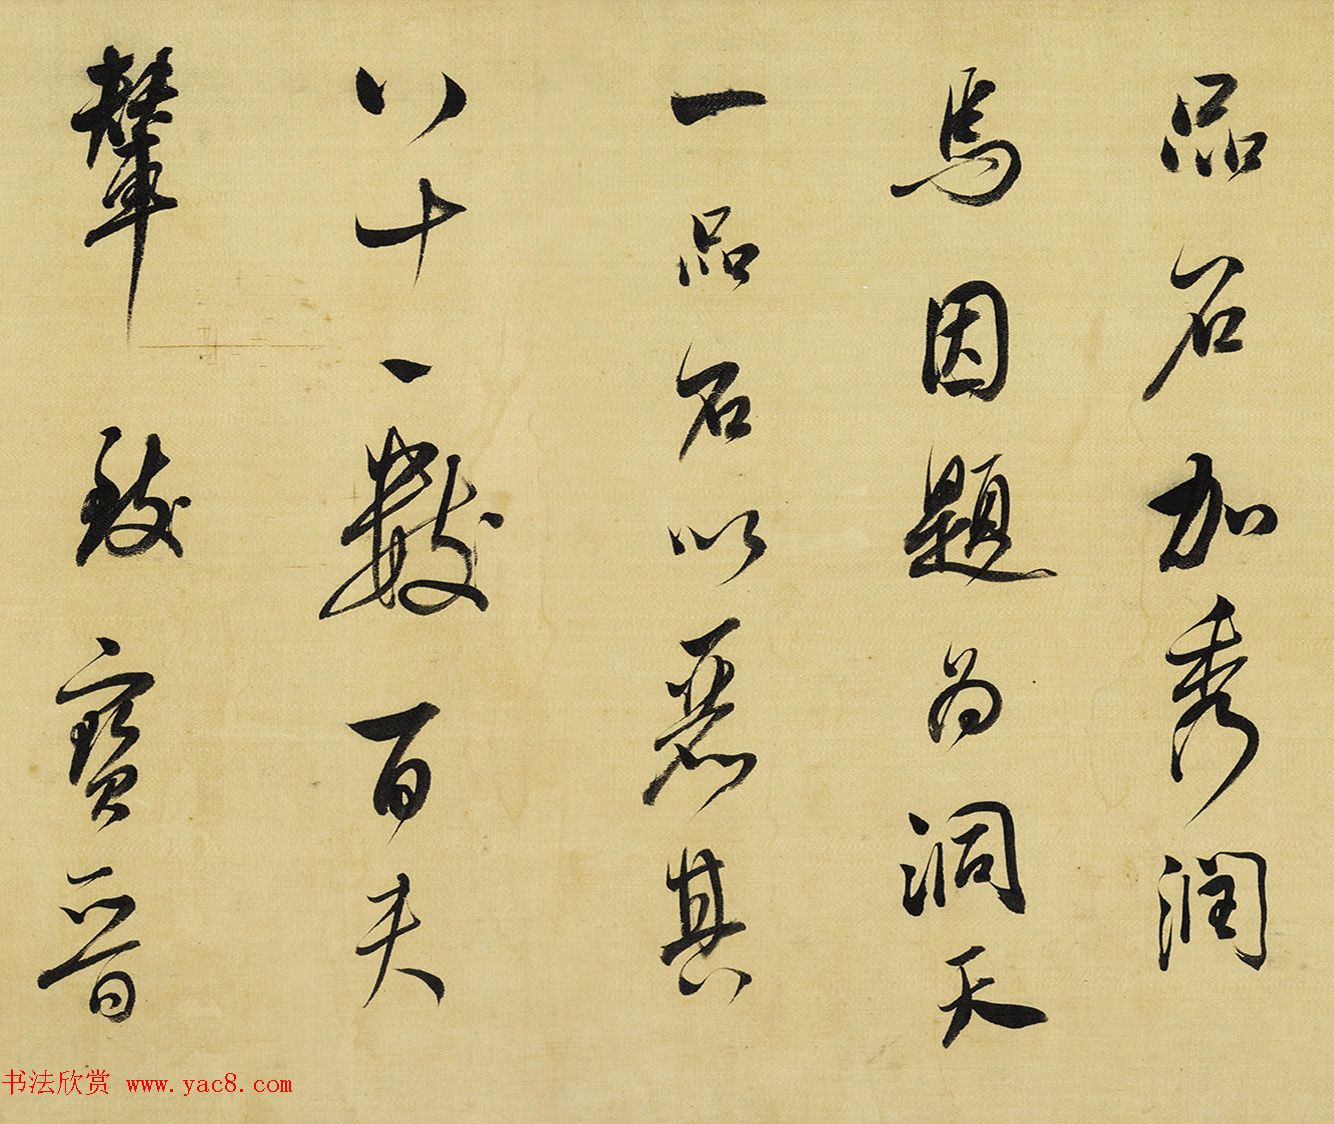 品石加秀润
焉因題为洞天
一品石以惡其
八十一數百夫
輦致寳晉
书法欣赏 www.yac8.com